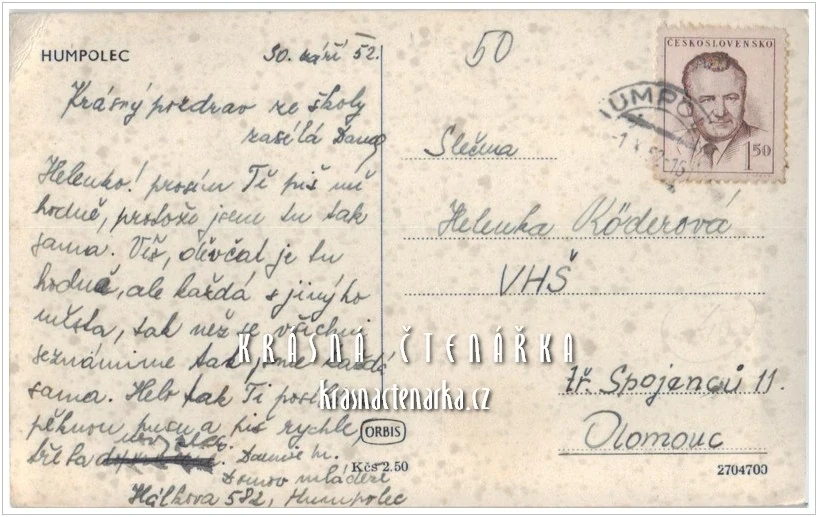 HUMPOLEC
30. září 52.
50
Krásný pozdrav ze školy
zasílá Dana
Helenko! prosím Tě piš mi
hodně, protože jsem tu tak
sama. Víš, děvčat je tu
hodně, ale každá s jinýho
města, tak než se všichni
seznámíme tak jsme každá
sama. Helo tak Ti posílám
pěknou pusu a piš rychle
Domov mládeže
Hálkova 582, Humpolec
ORBIS
Kčs 2.50
ČESKOSLOVENSKO
1.50
HUMPOLEC
Slečna
Helenka Köderová
VHŠ
tř. Spojenců 11.
Olomouc
2704700
KRÁSNÁ ČTENÁŘKA
krasnactenarka.cz